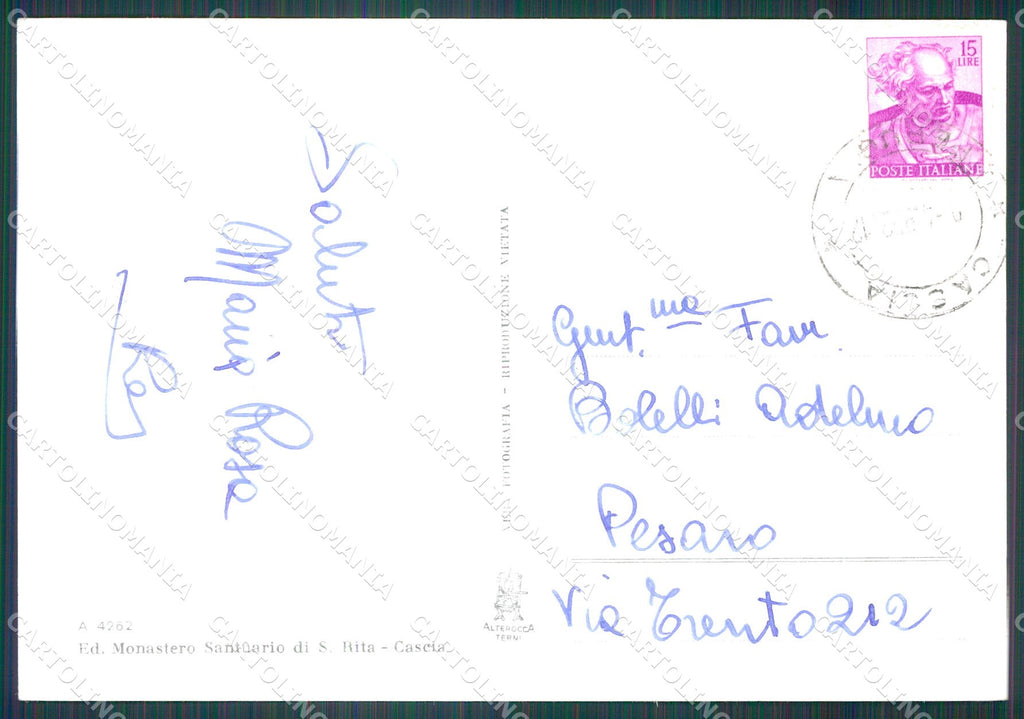 15
LIRE
POSTE ITALIANE
CASCIA
Saluti
Maria Rosa
Gent.ma Fam.
Bolelli Adelmo
Pesaro
Via Trento 212
FOTOGRAFIA - RIPRODUZIONE VIETATA
ALTEROCCA
TERNI
A 4262
Ed. Monastero Santuario di S. Rita - Cascia
CARTOLINOMANIA